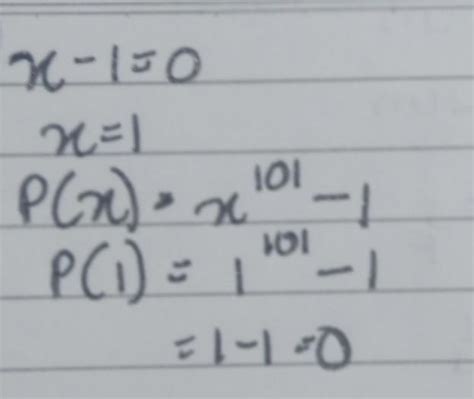 x - 1 = 0
x = 1
P(x) = x^101 - 1
P(1) = 1^101 - 1
= 1 - 1 = 0